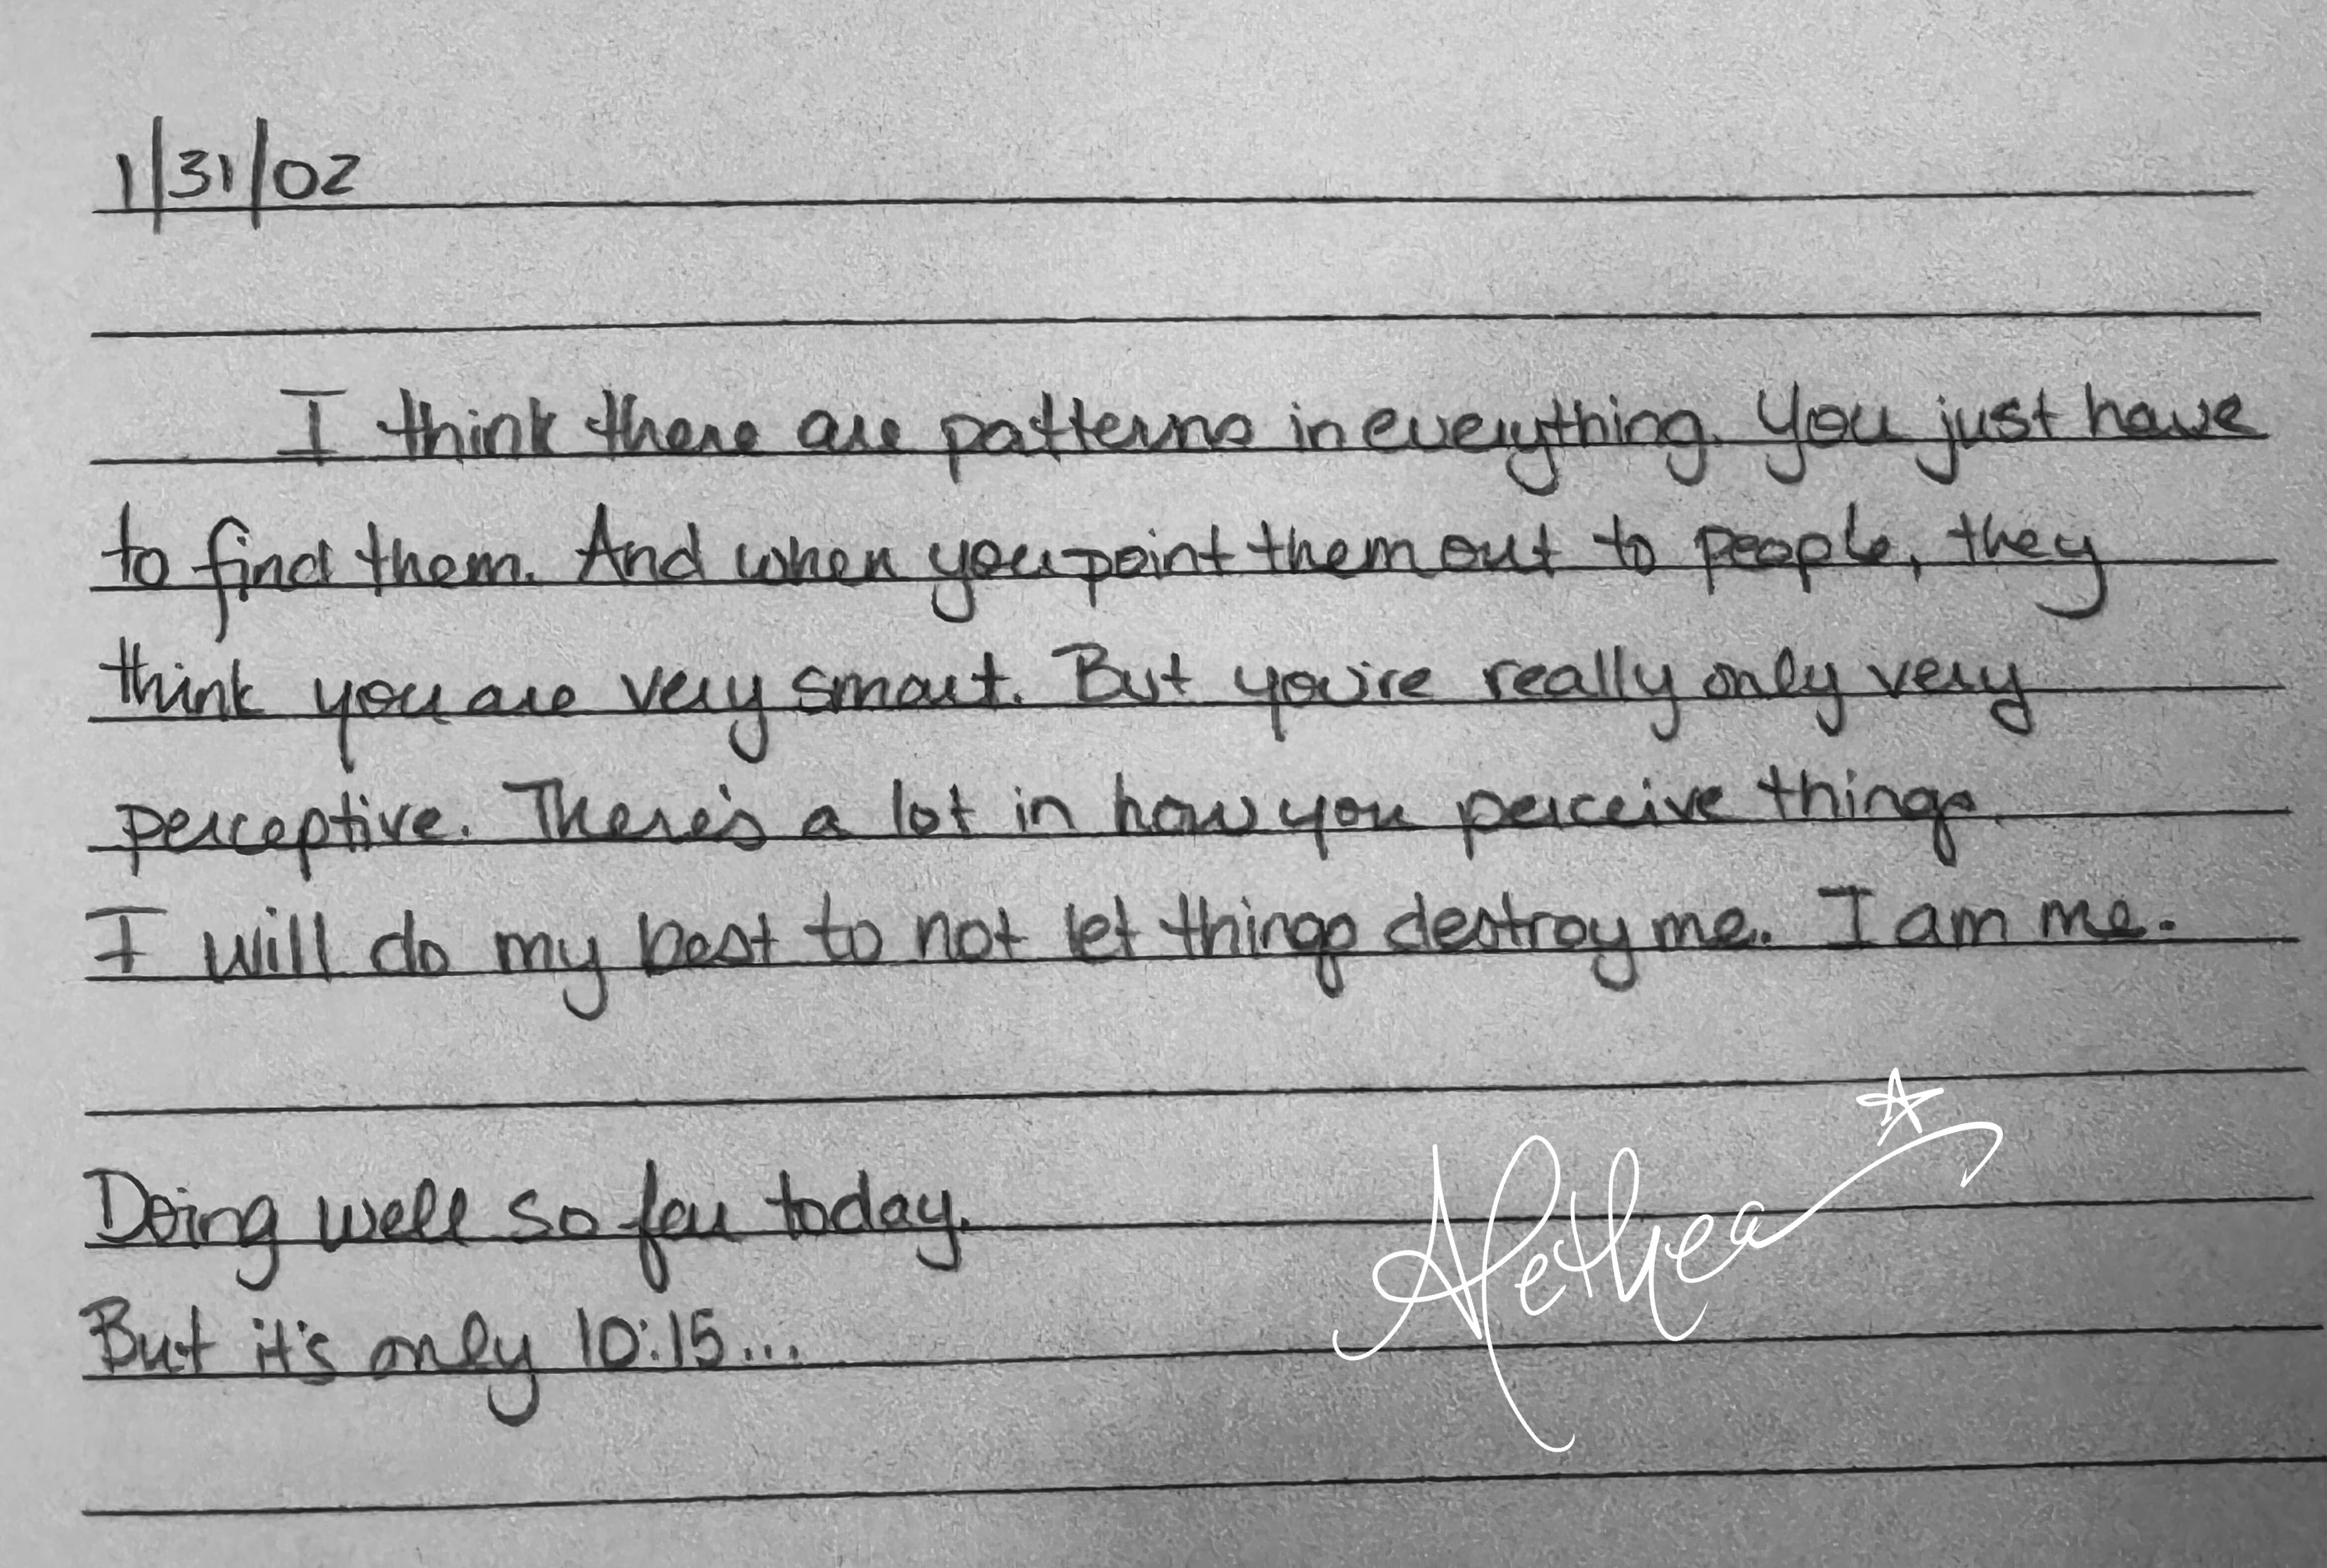 1/31/02
I think there are patterns in everything. You just have
to find them. And when you point them out to people, they
think you are very smart. But you're really only very
perceptive. There's a lot in how you perceive things.
I will do my best to not let things destroy me. I am me.
Doing well so far today.
But it's only 10:15...
Alethea